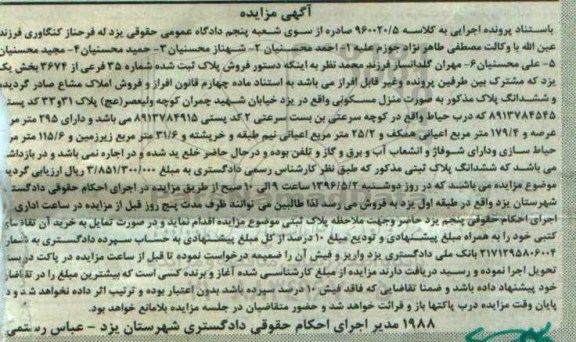 آگهی مزایده
باستناد پرونده اجرایی به کلاسه ۹۶۰۰۲۰/۵ صادره از سوی شعبه پنجم دادگاه عمومی حقوقی یزد له فرحناز کنگاوری فرزند
عین الله با وکالت مصطفی طاهر نژاد جوزم علیه ۱- احمد محسنیان ۲- شهناز محسنیان ۳- حمید محسنیان ۴- مجید محسنیان
۵- علی محسنیان ۶- مهران گلدانساز فرزند محمد نظر به اینکه دستور فروش پلاک ثبت شده شماره ۳۵ فرعی از ۳۶۷۴ بخش یک
یزد که مشترک بین طرفین پرونده وغیر قابل افراز می باشد به استناد ماده چهارم قانون افراز و فروش املاک مشاع صادر گردیده
و ششدانگ پلاک مذکور به صورت منزل مسکونی واقع در یزد خیابان شهید چمران کوچه ولیعصر(عج) پلاک ۳۱و۳۳ کد پستی
۸۹۱۳۷۸۴۵۴۵ که درب حیاط واقع در کوچه سرعتی بن بست سرعتی ۲ کد پستی ۸۹۱۳۷۸۴۹۱۵ می باشد و دارای ۲۹۵ متر مربع
عرصه و ۱۷۹/۴ متر مربع اعیانی همکف و ۲۵/۲ متر مربع اعیانی نیم طبقه و خرپشته و ۳۱/۶ متر مربع زیرزمین و ۱۱۵/۶ متر مربع
حیاط سازی ودارای شوفاژ و انشعاب آب و برق و گاز و تلفن بوده و درحال حاضر خلع ید شده و در اجاره نمی باشد و در بازداشت
می باشد که ششدانگ پلاک ثبتی مذکور که طبق نظر کارشناس رسمی دادگستری به مبلغ ۳/۸۵۱/۳۰۰/۰۰۰ ریال ارزیابی گردیده
موضوع مزایده می باشد که در روز دوشنبه ۱۳۹۶/۵/۲ ساعت ۹ الی ۱۰ صبح از طریق مزایده در اجرای احکام حقوقی دادگستری
شهرستان یزد واقع در طبقه اول یزد به فروش می رسد لذا طالبین می توانند ظرف مدت پنج روز قبل از مزایده در ساعت اداری
اجرای احکام حقوقی پنجم یزد حاضر وجهت ملاحظه پلاک ثبتی موضوع مزایده اقدام نماید و در صورت تمایل به خرید آن تقاضای
کتبی خود را به همراه مبلغ پیشنهادی و تودیع مبلغ ۱۰ درصد از کل مبلغ پیشنهادی به حساب سپرده دادگستری به شماره
۲۱۷۱۲۹۵۸۰۶۰۰۴ بانک ملی دادگستری یزد واریز و فیش آن را ضمیمه درخواست نموده تا قبل از ساعت مزایده در پاکت دربسته
تحویل اجرا نموده و رسید دریافت دارند مزایده از مبلغ کارشناسی شده آغاز و برنده کسی است که بیشترین مبلغ را در تقاضای
خود پیشنهاد داده باشد و ضمنا تقاضایی که فاقد فیش ۱۰ درصد سپرده باشد بدون اعتبار بوده و ترتیب اثر داده نخواهد شد و در
پایان وقت مزایده درب پاکتها باز و قرائت خواهد شد و حضور متقاضیان در جلسه مزایده بلامانع خواهد بود.
۱۹۸۸ مدیر اجرای احکام حقوقی دادگستری شهرستان یزد - عباس رستمی